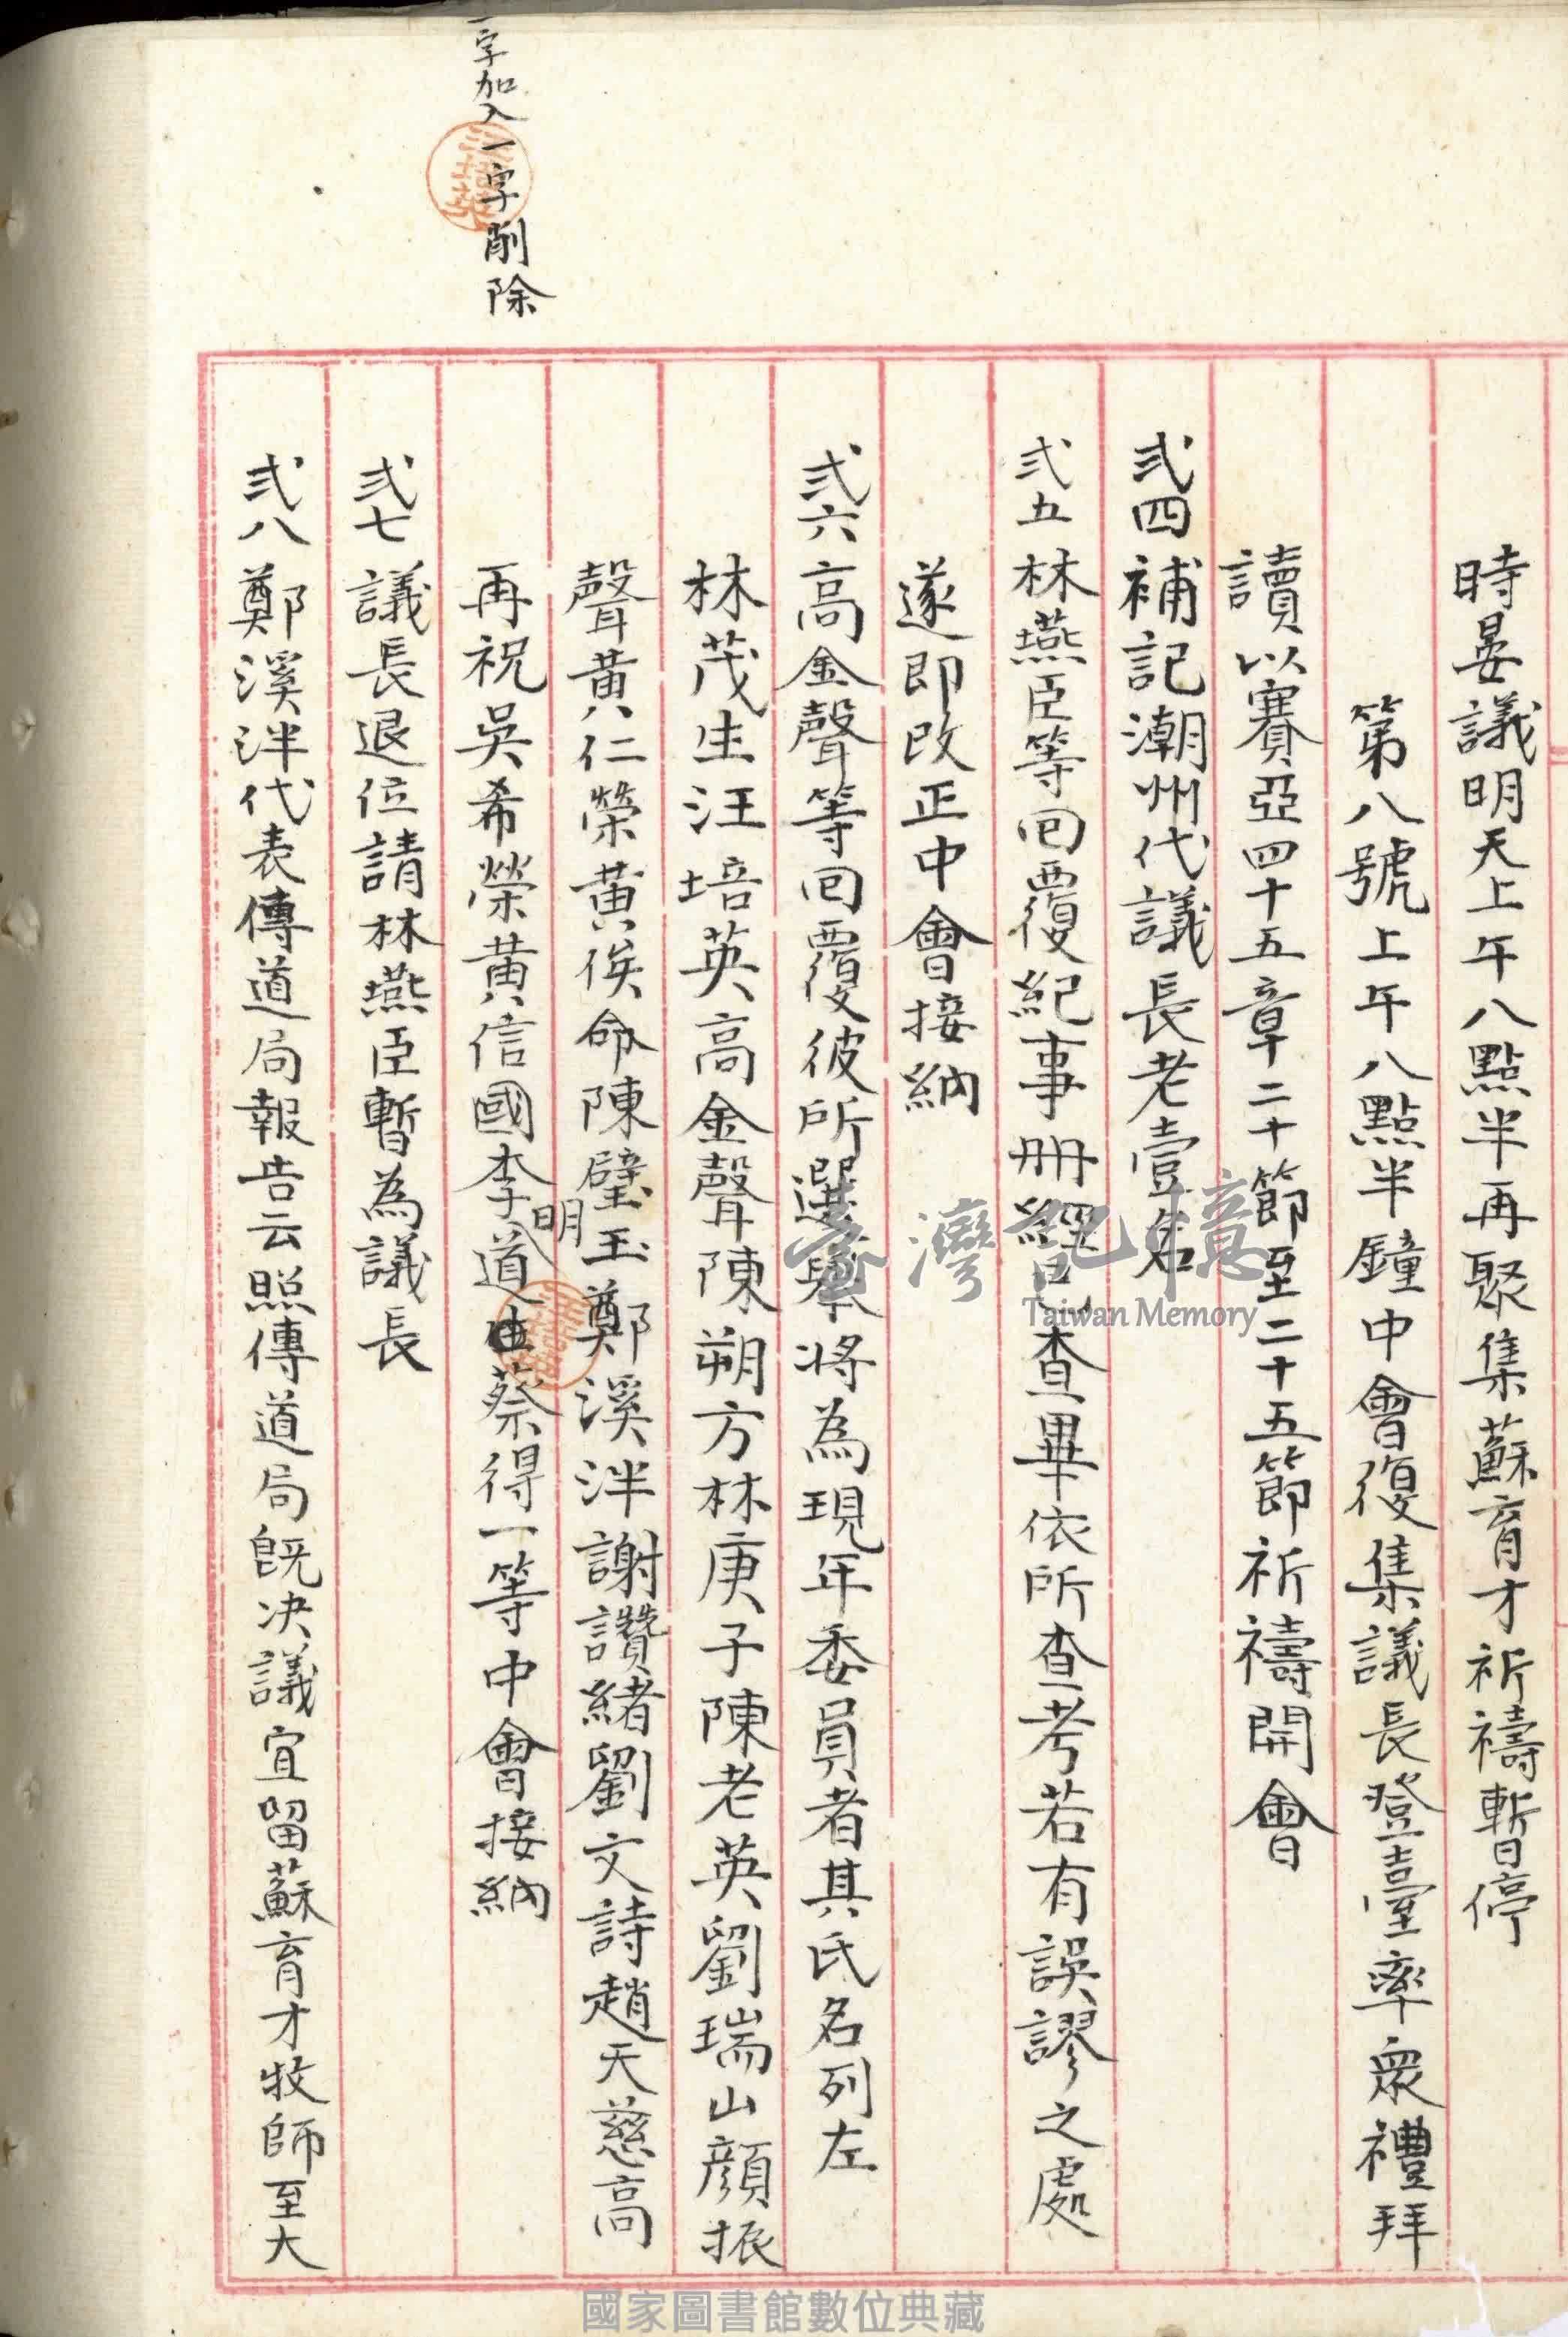 時晏議明天上午八點半再聚集蘇育才祈禱暫停
第八號上午八點半鐘中會復集議長登臺率衆禮拜
讀以賽亞四十五章二十節至二十五節祈禱開會
弍四補記潮州代議長老壹名
弍五林燕臣等回覆紀事册經已查畢依所查考若有誤謬之處
遂即改正中會接納
弍六高金聲等回覆彼所選舉將為現年委員者其氏名列左
林茂生汪培英高金聲陳朔方林庚子陳老英劉瑞山顏振
聲黃仁榮黃俟命陳璧玉鄭溪泮謝讚緒劉文詩趙天慈高
再祝吳希榮黃信國李明道蔡得一等中會接納
一字加入一字削除
弍七議長退位請林燕臣暫為議長
弍八鄭溪泮代表傳道局報告云照傳道局旣决議宜留蘇育才牧師至大
臺灣記憶
Taiwan Memory
國家圖書館數位典藏